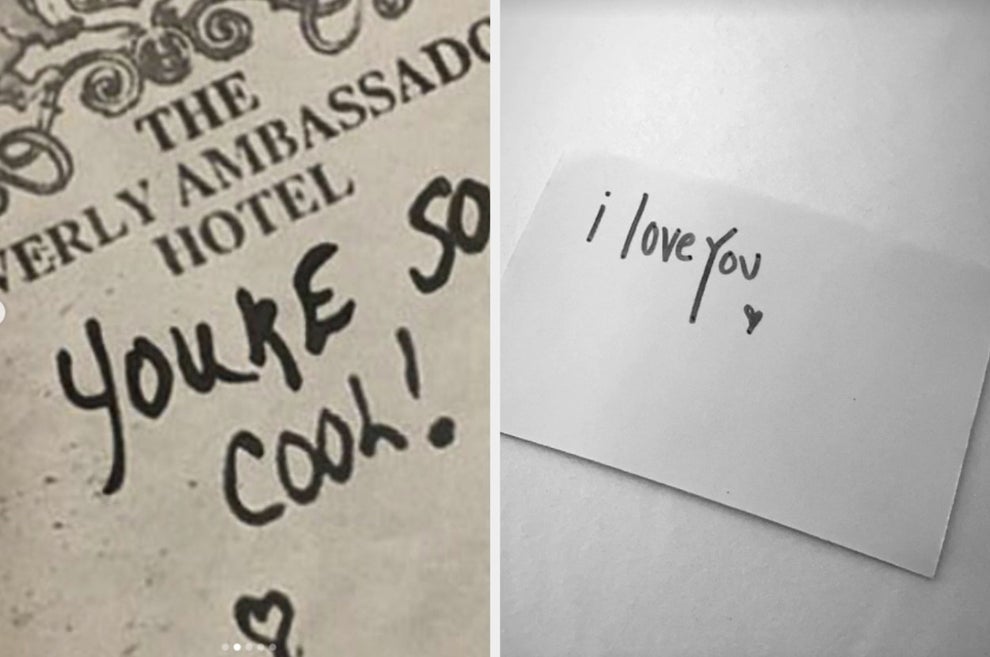 THE
VERLY AMBASSADO
HOTEL
YOU'RE SO
COOL!
i love you